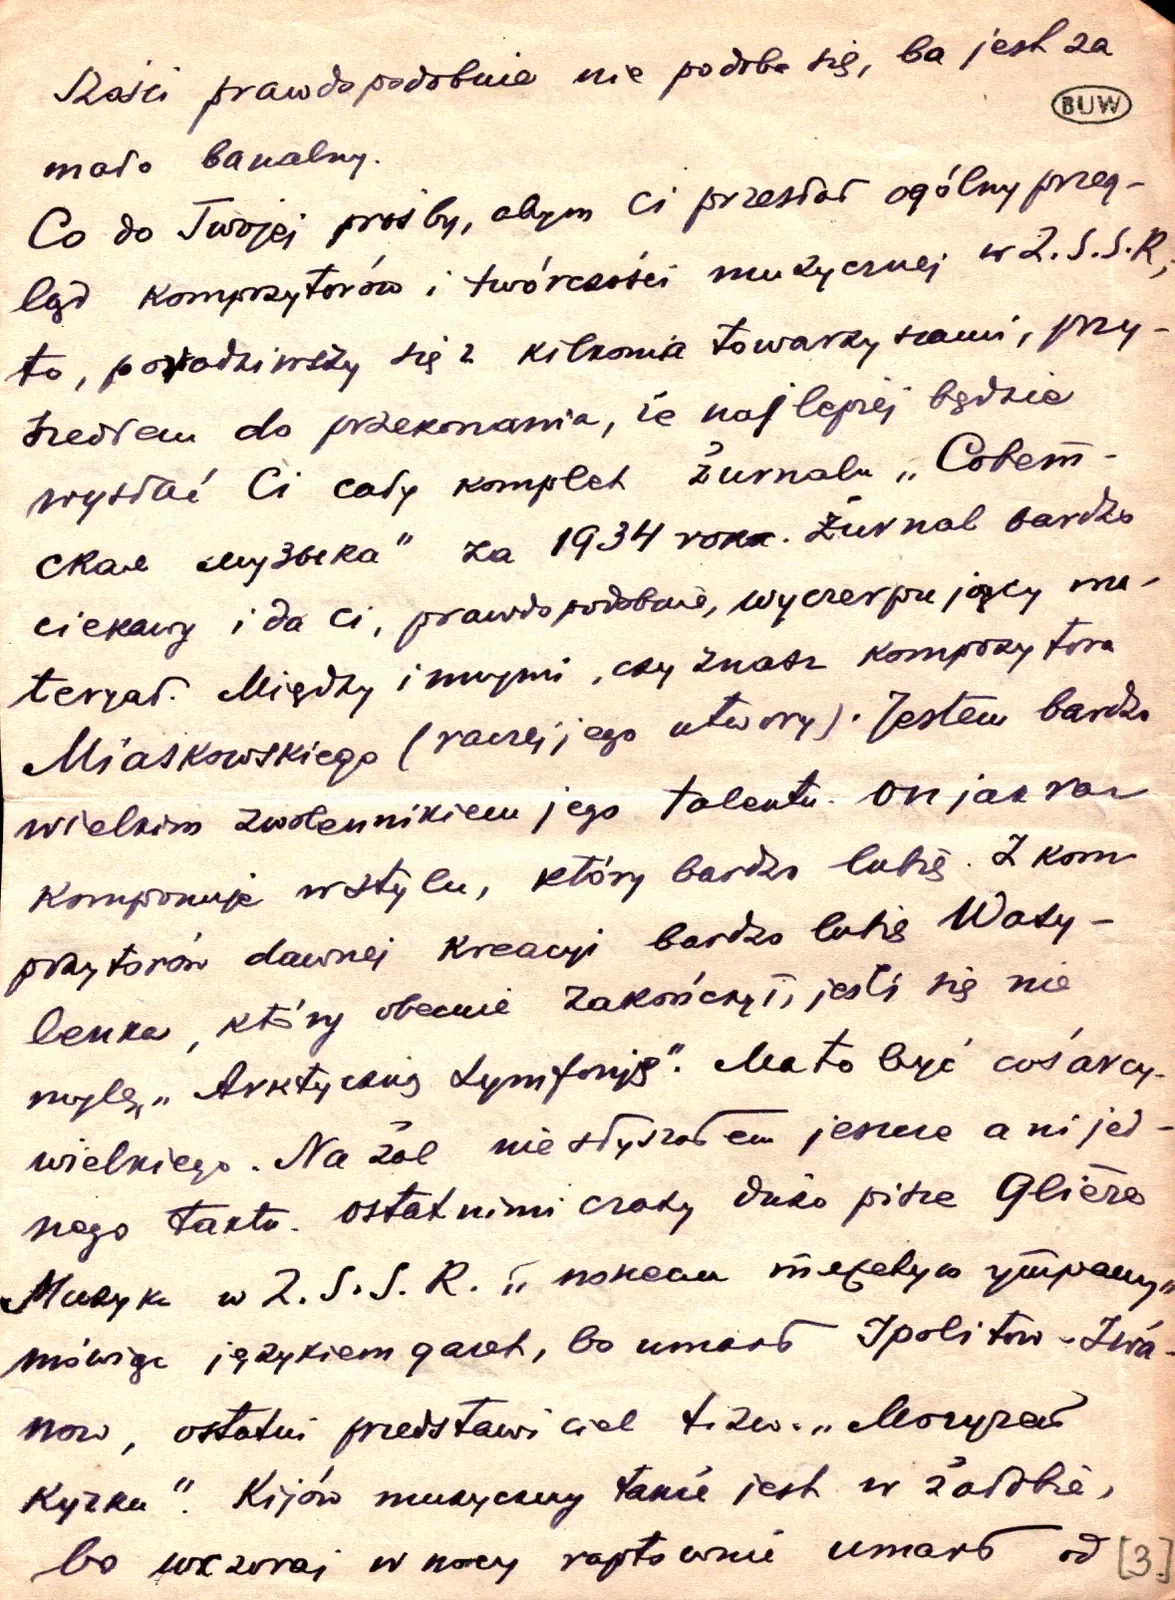 prawdopodobnie nie podoba się, bo jest za
BUW
mało banalny.
Co do Twojej prośby, abym Ci przesłał ogólny przeg-
ląd kompozytorów i twórczości muzycznej w Z.S.S.R,
to, poradziwszy się z kilkoma towarzyszami, przy-
szedłem do przekonania, że najlepiej będzie
wysłać Ci cały komplet żurnalu „Совет-
ская музыка" za 1934 roku. Żurnal bardzo
ciekawy i da Ci, prawdopodobnie, wyczerpujący ma-
teryał. Między innymi, czy znasz kompozytora
Miaskowskiego (raczej jego utwory). Jestem bardzo
wielkim zwolennikiem jego talentu. On jak raz
komponuje w stylu, który bardzo lubię. Z kom
pozytorów dawnej kreacyi bardzo lubię Wasy-
lenka, który obecnie zakończył, jeśli się nie
mylę, „Arktyczną Symfonję". Ma to być coś arcy-
wielkiego. Na żal nie słyszałem jeszcze ani jed-
nego taktu. Ostatnimi czasy dużo pisze Glière
Muzyka w Z.S.S.R. „
mówiąc językiem gazet, bo umarł Ipolitow-Iwa-
now, ostatni predstawiciel t.zw. „
". Kijów muzyczny także jest w żałobie,
bo wczoraj w nocy raptownie umarł od
[3]